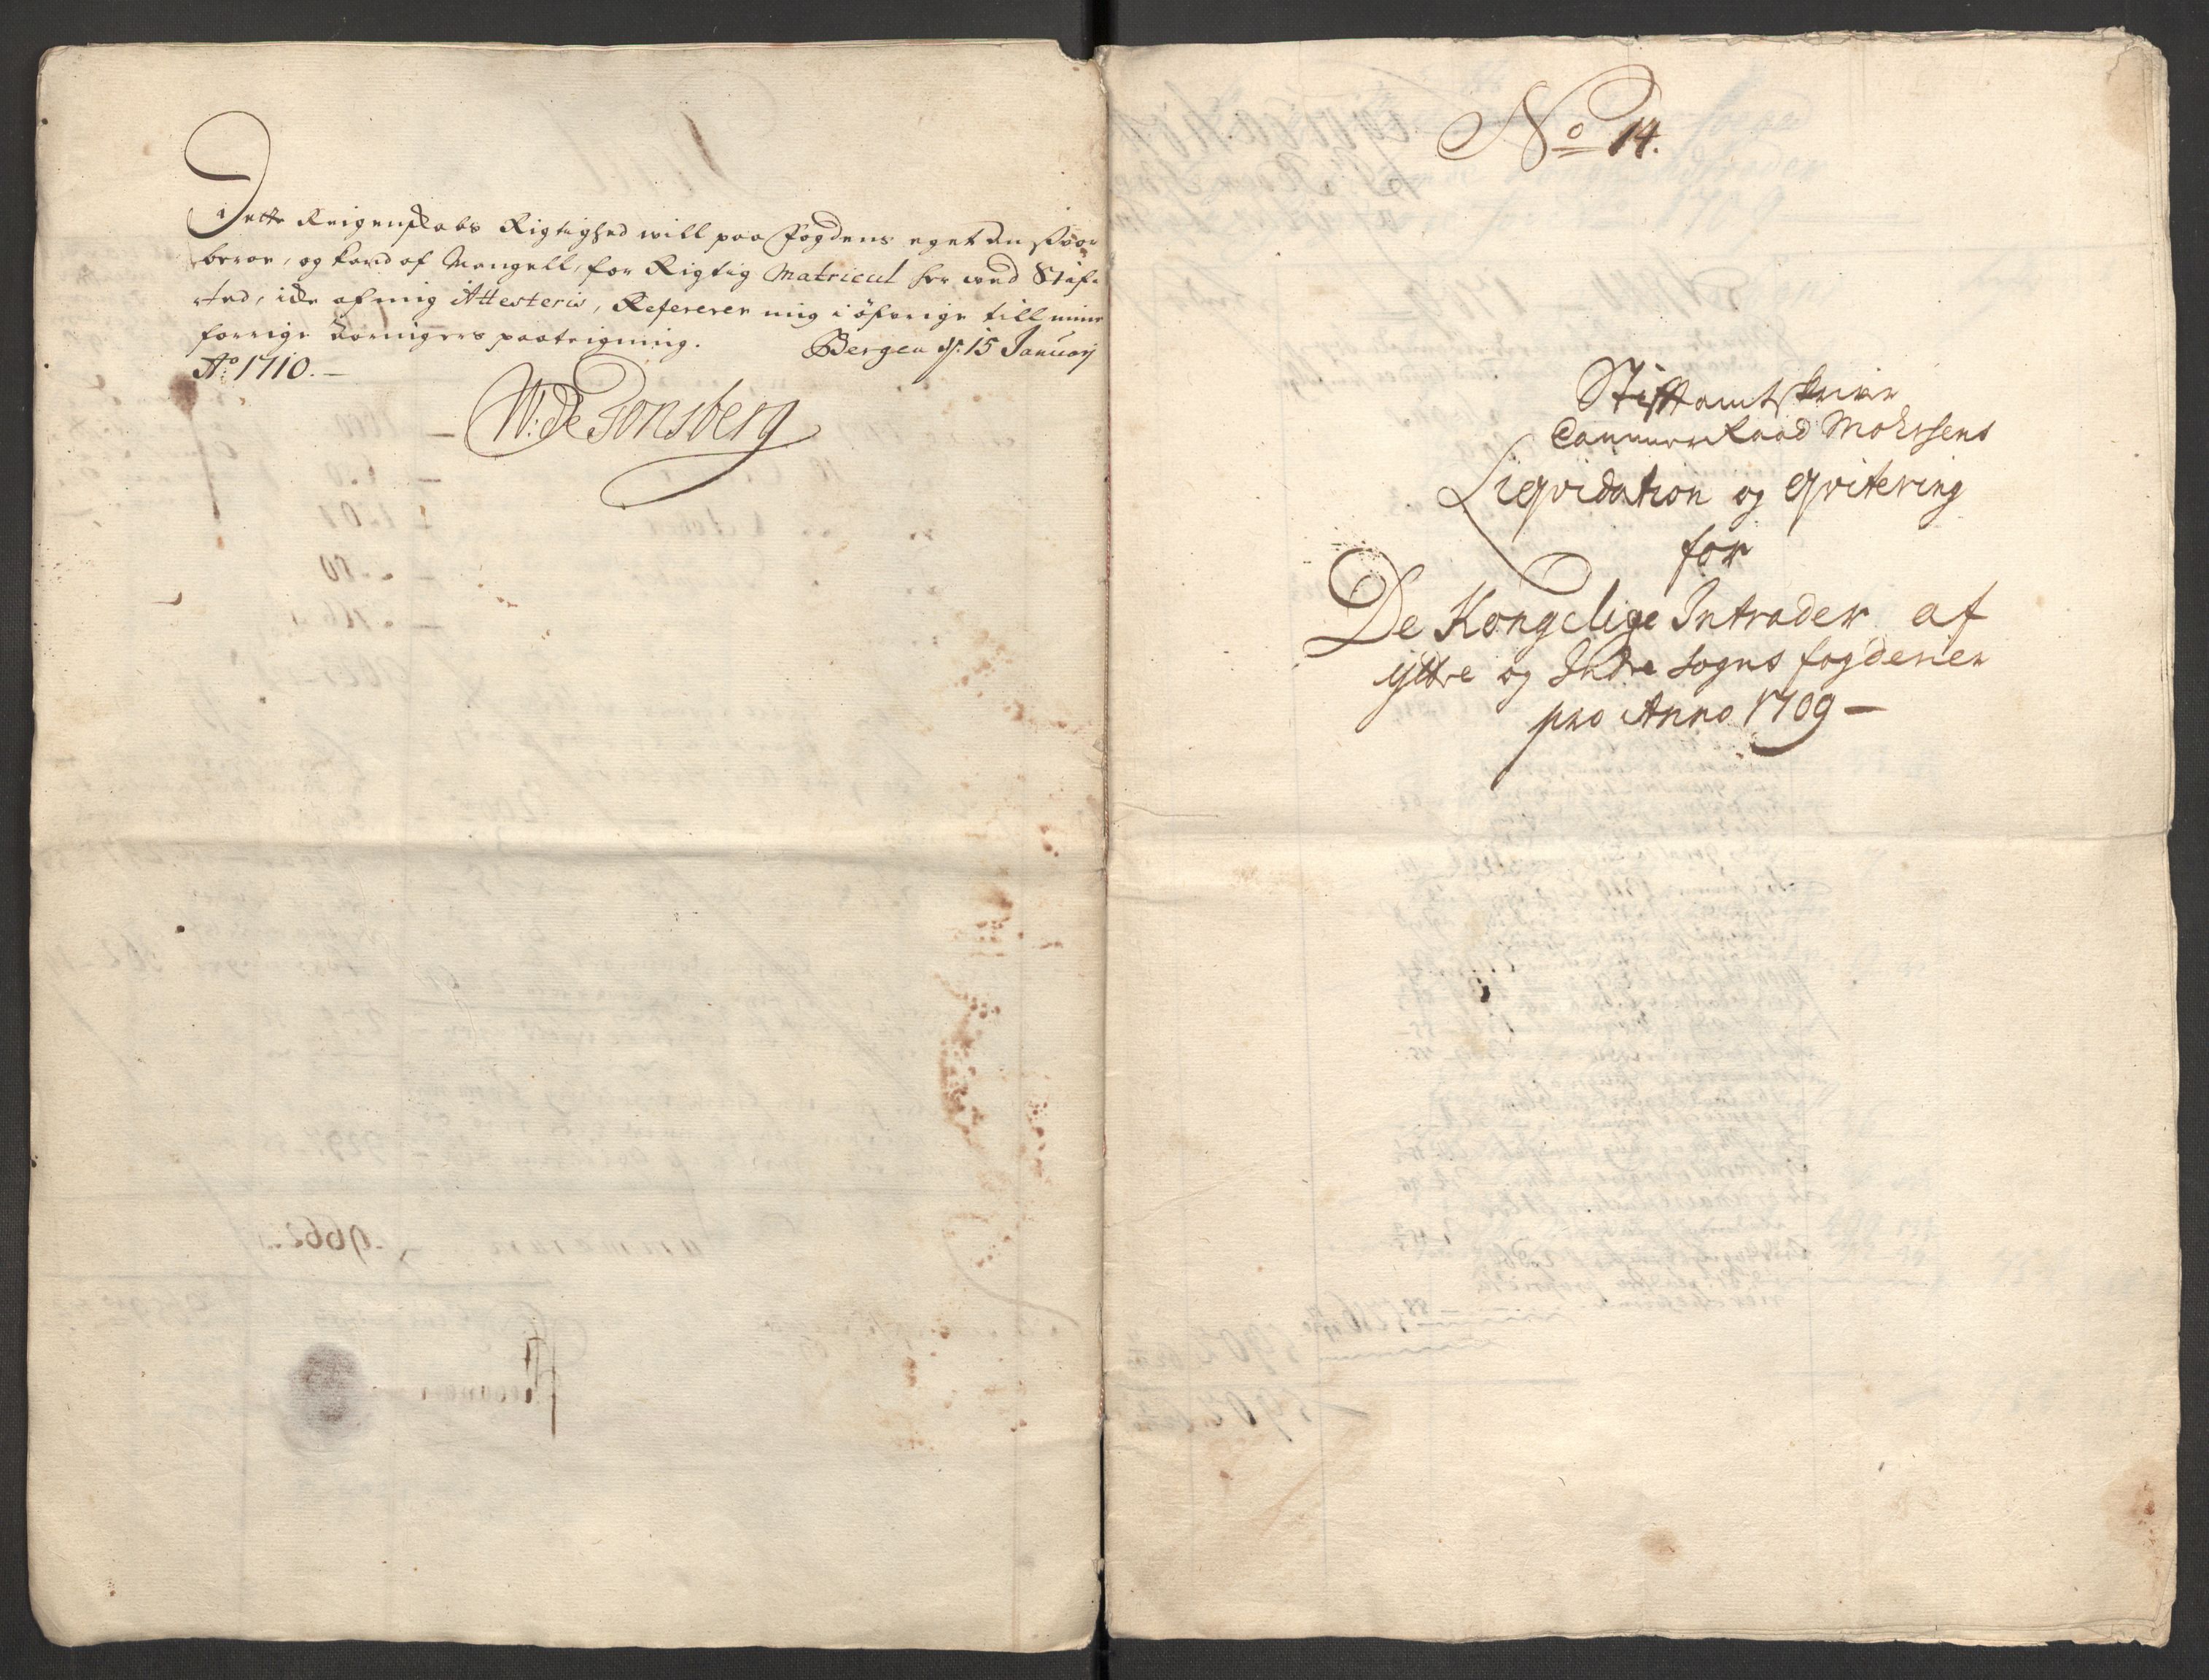 Dette Reigenskabs Rigtighed will paa Fogdens eget ansvar
beroe, og kand af Mangell, for Rigtig Matricul her ved Stif-
ted, icke af mig Attesteris, Refererer mig i öfvrige till min
forrige paateigning. Bergen d. 15 January
Ao 1710.
W: De Tonsberg
No 14.
Stiftamtskriver
Cammer Raad Mohrsens
Liqvidation og Qvitering
for
De Kongelige Intrader af
yttre og Indre Sogns fogderier
pro Anno 1709